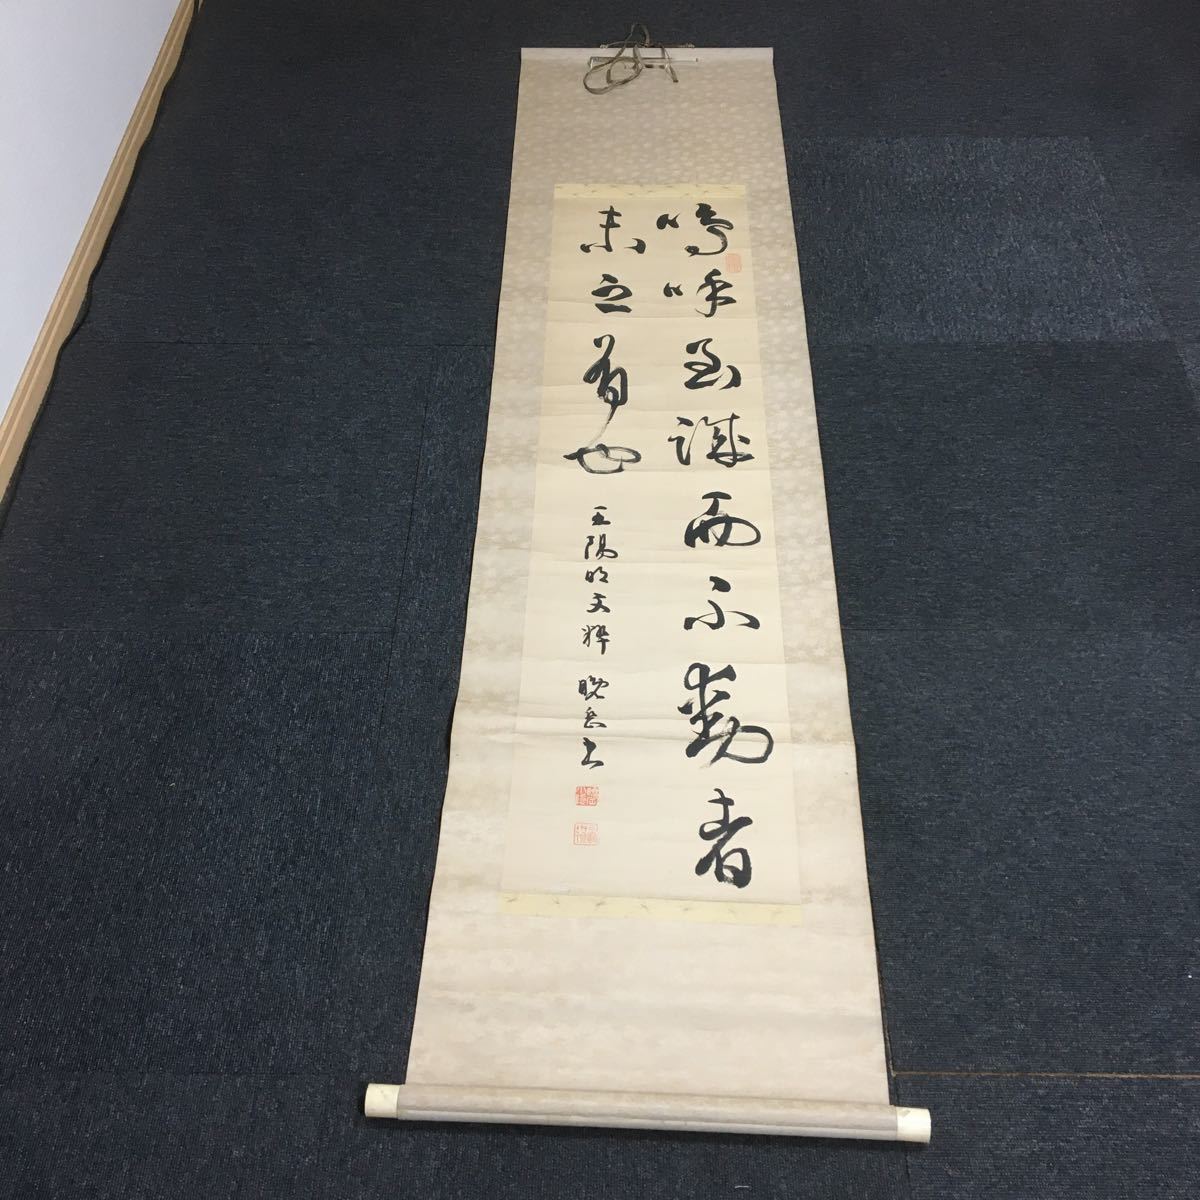 嗚呼至誠而不動者
未之有也
王陽明文粹 晩岳書